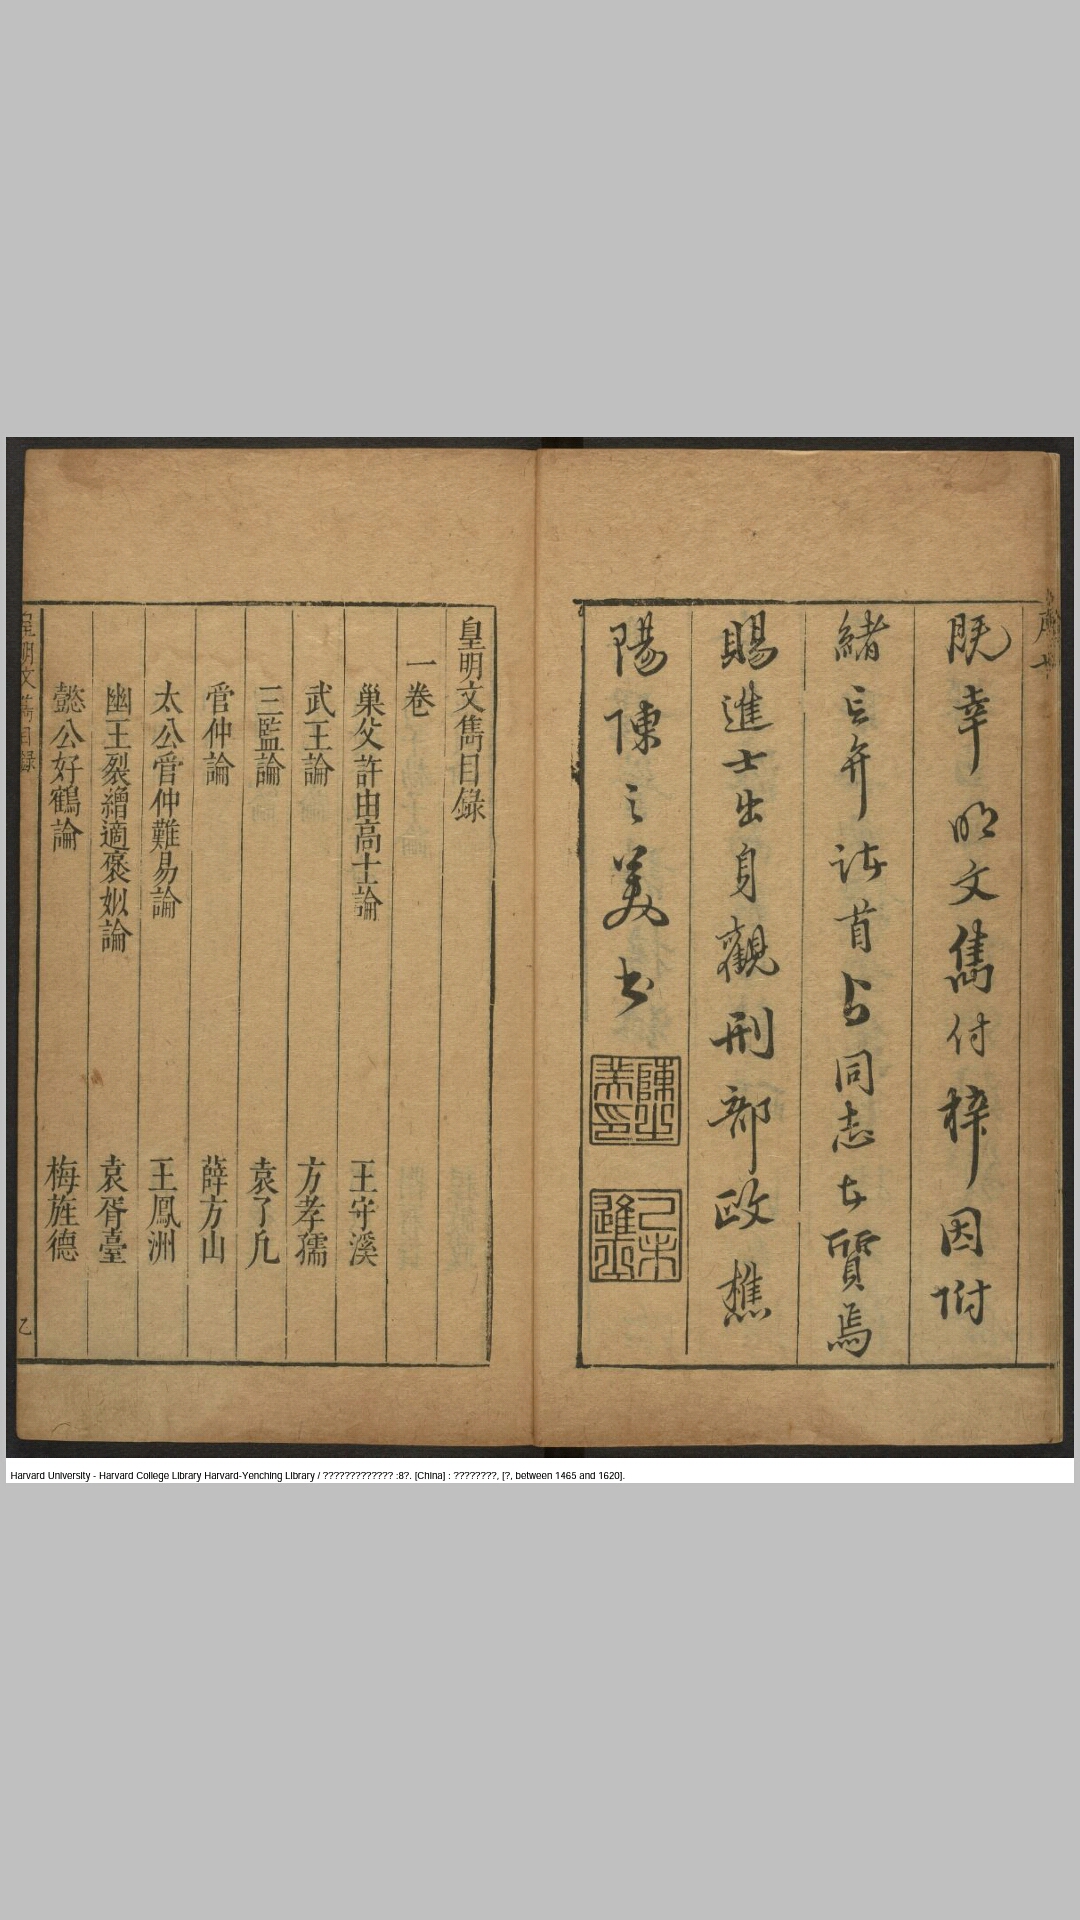 既幸明文雋付梓因附
緒言弁諸首與同志者質焉
賜進士出身觀刑部政樵
陽陳之美書
陳之美印
己未進士
皇明文雋目錄
一卷
巢父許由高士論 王守溪
武王論 方孝孺
三監論 袁了凡
管仲論 薛方山
太公管仲難易論 王鳳洲
幽王裂繒適褒姒論 袁胥臺
懿公好鶴論 梅旌德
皇明文雋目錄
乙
Harvard University - Harvard College Library Harvard-Yenching Library / ????????????? :8?. [China] : ????????, [?, between 1465 and 1620].